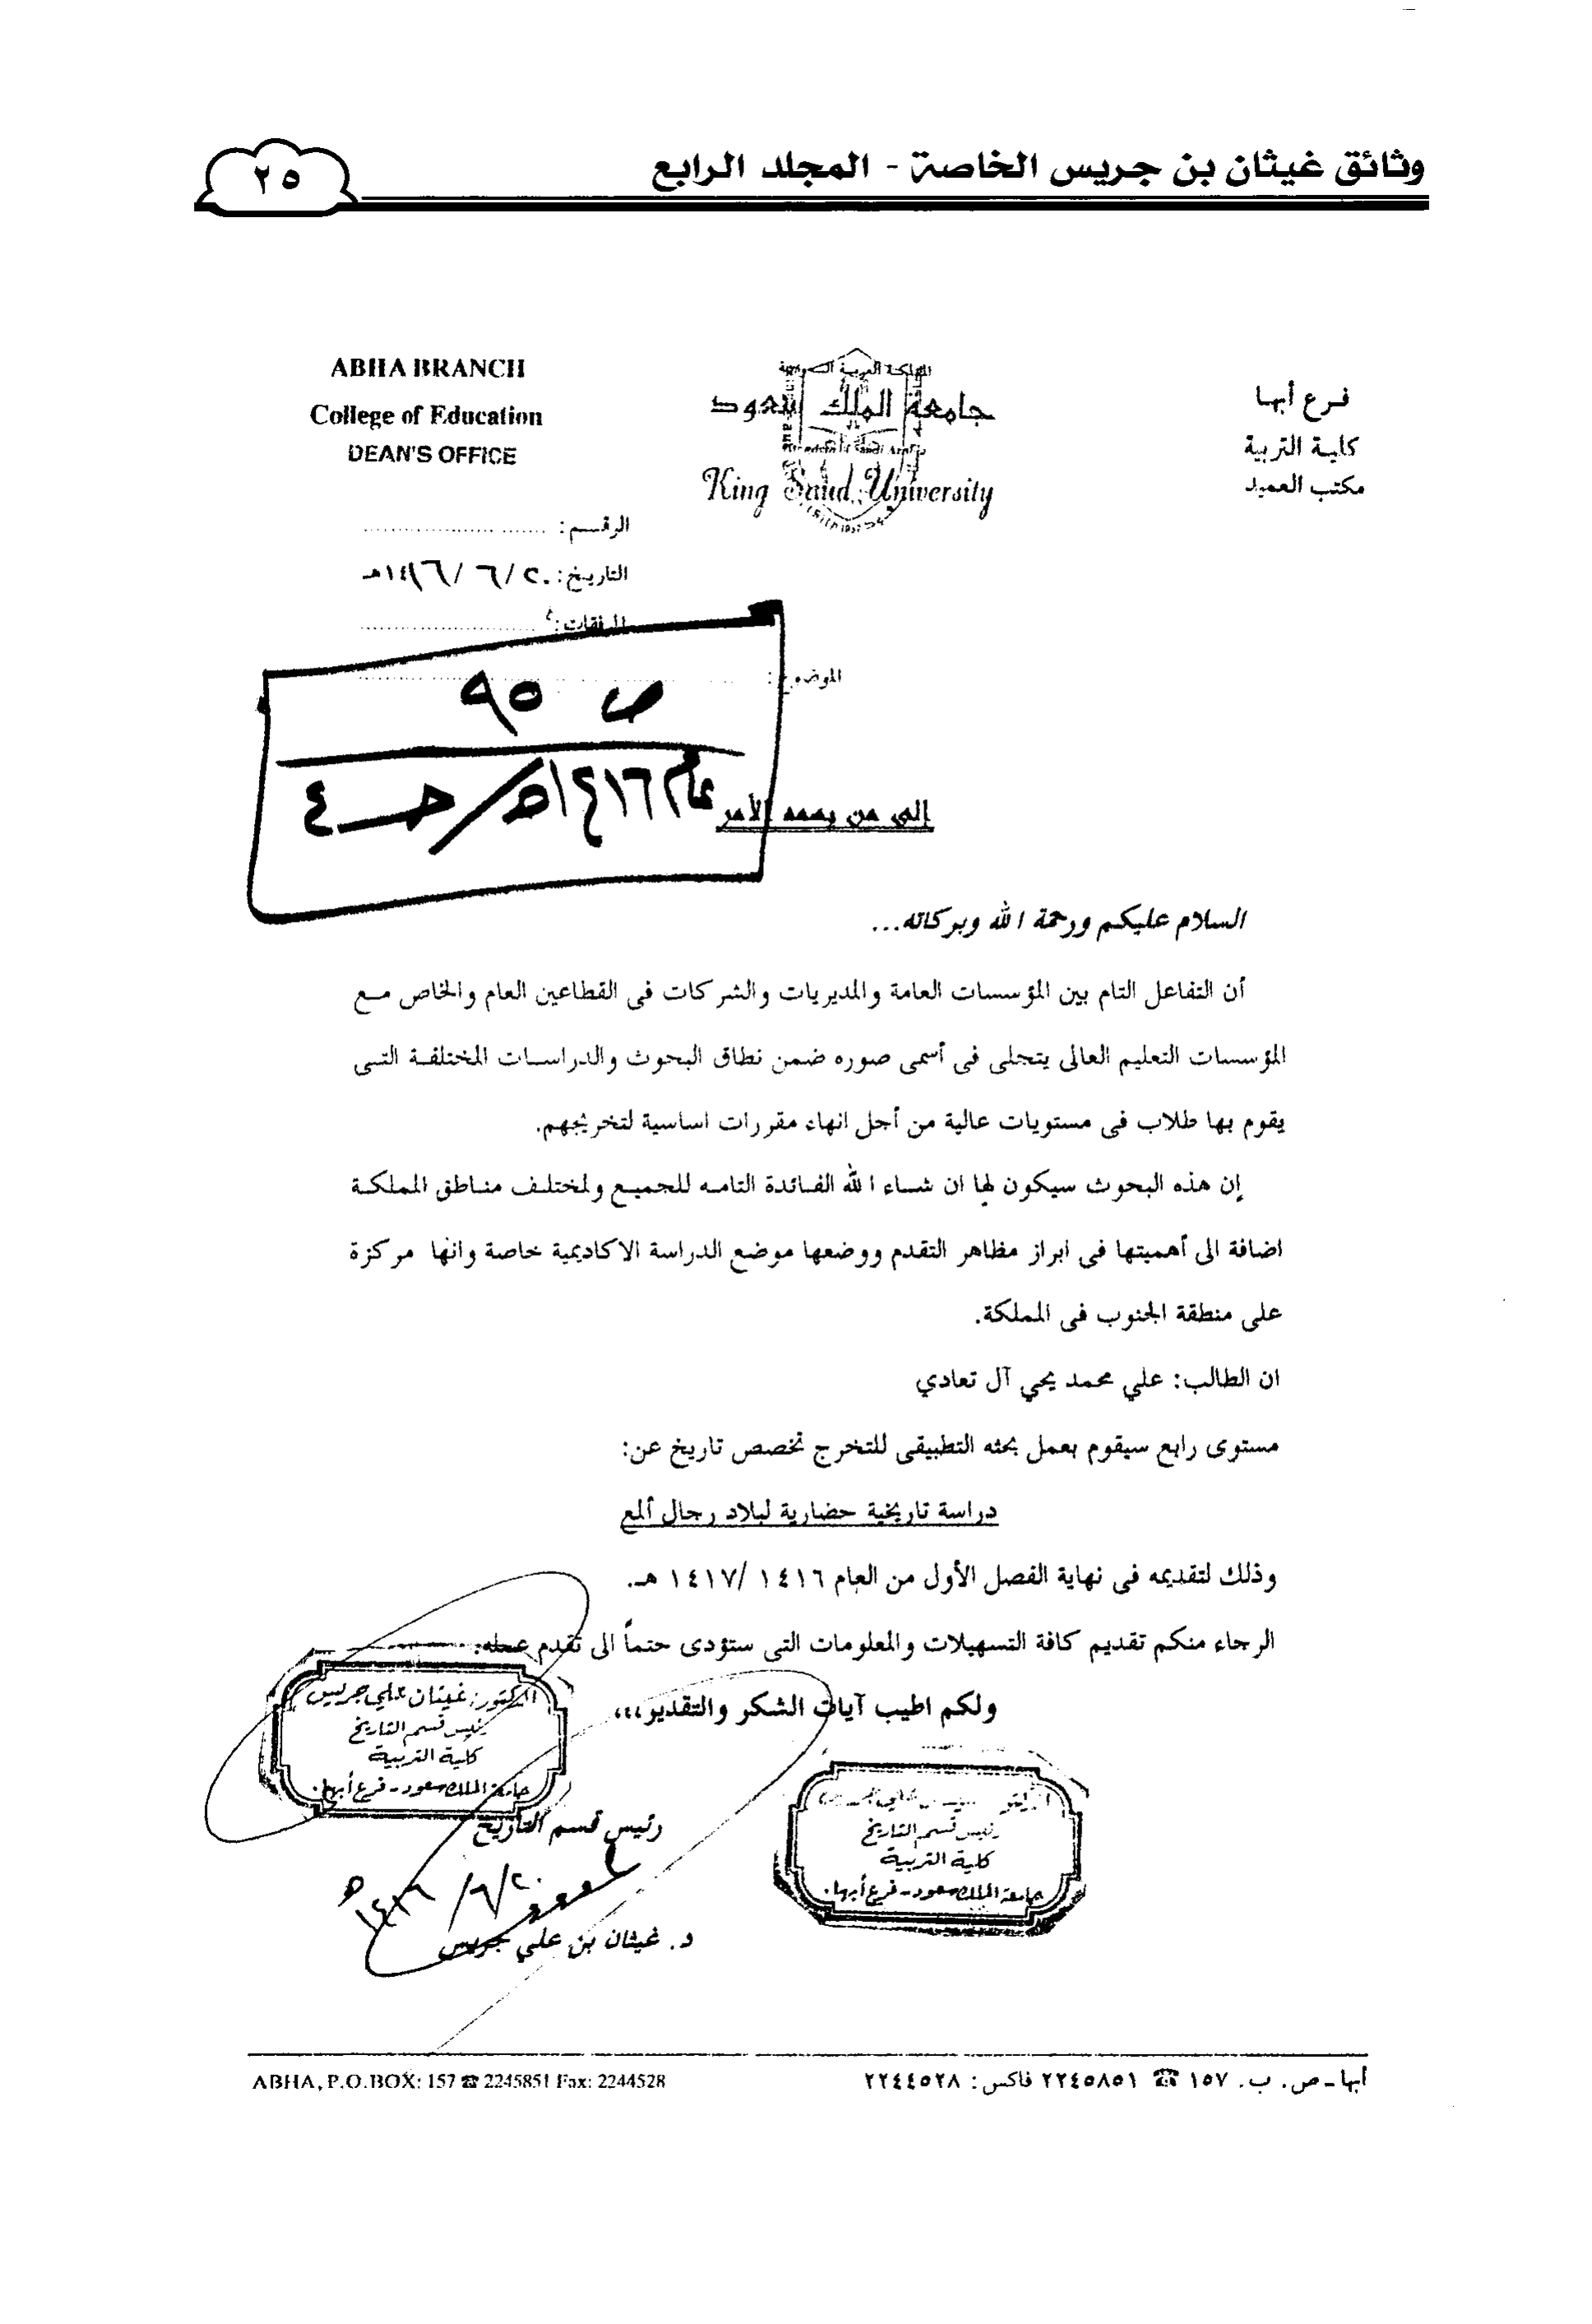 وثائق غيثان بن جريس الخاصة - المجلد الرابع
٢٥
ABHA BRANCH
College of Education
DEAN'S OFFICE
المملكة العربية السعودية
جامعة الملك سعود
King Saud University
فرع أبها
كلية التربية
مكتب العميد
الرقم:
التاريخ: ٢٠/ ٦ /١٤١٦هـ
المرفقات:
الموضوع:
ص ٩٥
عام ١٤١٦هـ/ حـ ٤
إلى من يهمه الأمر
السلام عليكم ورحمة الله وبركاته...
أن التفاعل التام بين المؤسسات العامة والمديريات والشركات فى القطاعين العام والخاص مع
المؤسسات التعليم العالى يتجلى فى أسمى صوره ضمن نطاق البحوث والدراسات المختلفة التى
يقوم بها طلاب فى مستويات عالية من أجل انهاء مقررات اساسية لتخريجهم.
إن هذه البحوث سيكون لها ان شاء الله الفائدة التامه للجميع ولمختلف مناطق المملكة
اضافة الى أهميتها فى ابراز مظاهر التقدم ووضعها موضع الدراسة الاكاديمية خاصة وانها مركزة
على منطقة الجنوب فى المملكة.
ان الطالب: علي محمد يحي آل تعادي
مستوى رابع سيقوم بعمل بحثه التطبيقى للتخرج تخصص تاريخ عن:
دراسة تاريخية حضارية لبلاد رجال ألمع
وذلك لتقديمه فى نهاية الفصل الأول من العام ١٤١٦ /١٤١٧ هـ.
الرجاء منكم تقديم كافة التسهيلات والمعلومات التى ستؤدى حتماً الى تقدم عمله.
ولكم اطيب آيات الشكر والتقدير،،،
الدكتور: غيثان علي جريس
رئيس قسم التاريخ
كلية التربية
جامعة الملك سعود - فرع أبها.
رئيس قسم التاريخ
كلية التربية
جامعة الملك سعود - فرع أبها.
رئيس قسم التاريخ
٢٠/ ٦/ ١٤١٦هـ
د. غيثان بن علي جريس
ABHA, P.O.BOX: 157 ☎ 2245851 Fax: 2244528
أبها - ص. ب. ١٥٧ ☎ ٢٢٤٥٨٥١ فاكس: ٢٢٤٤٥٢٨